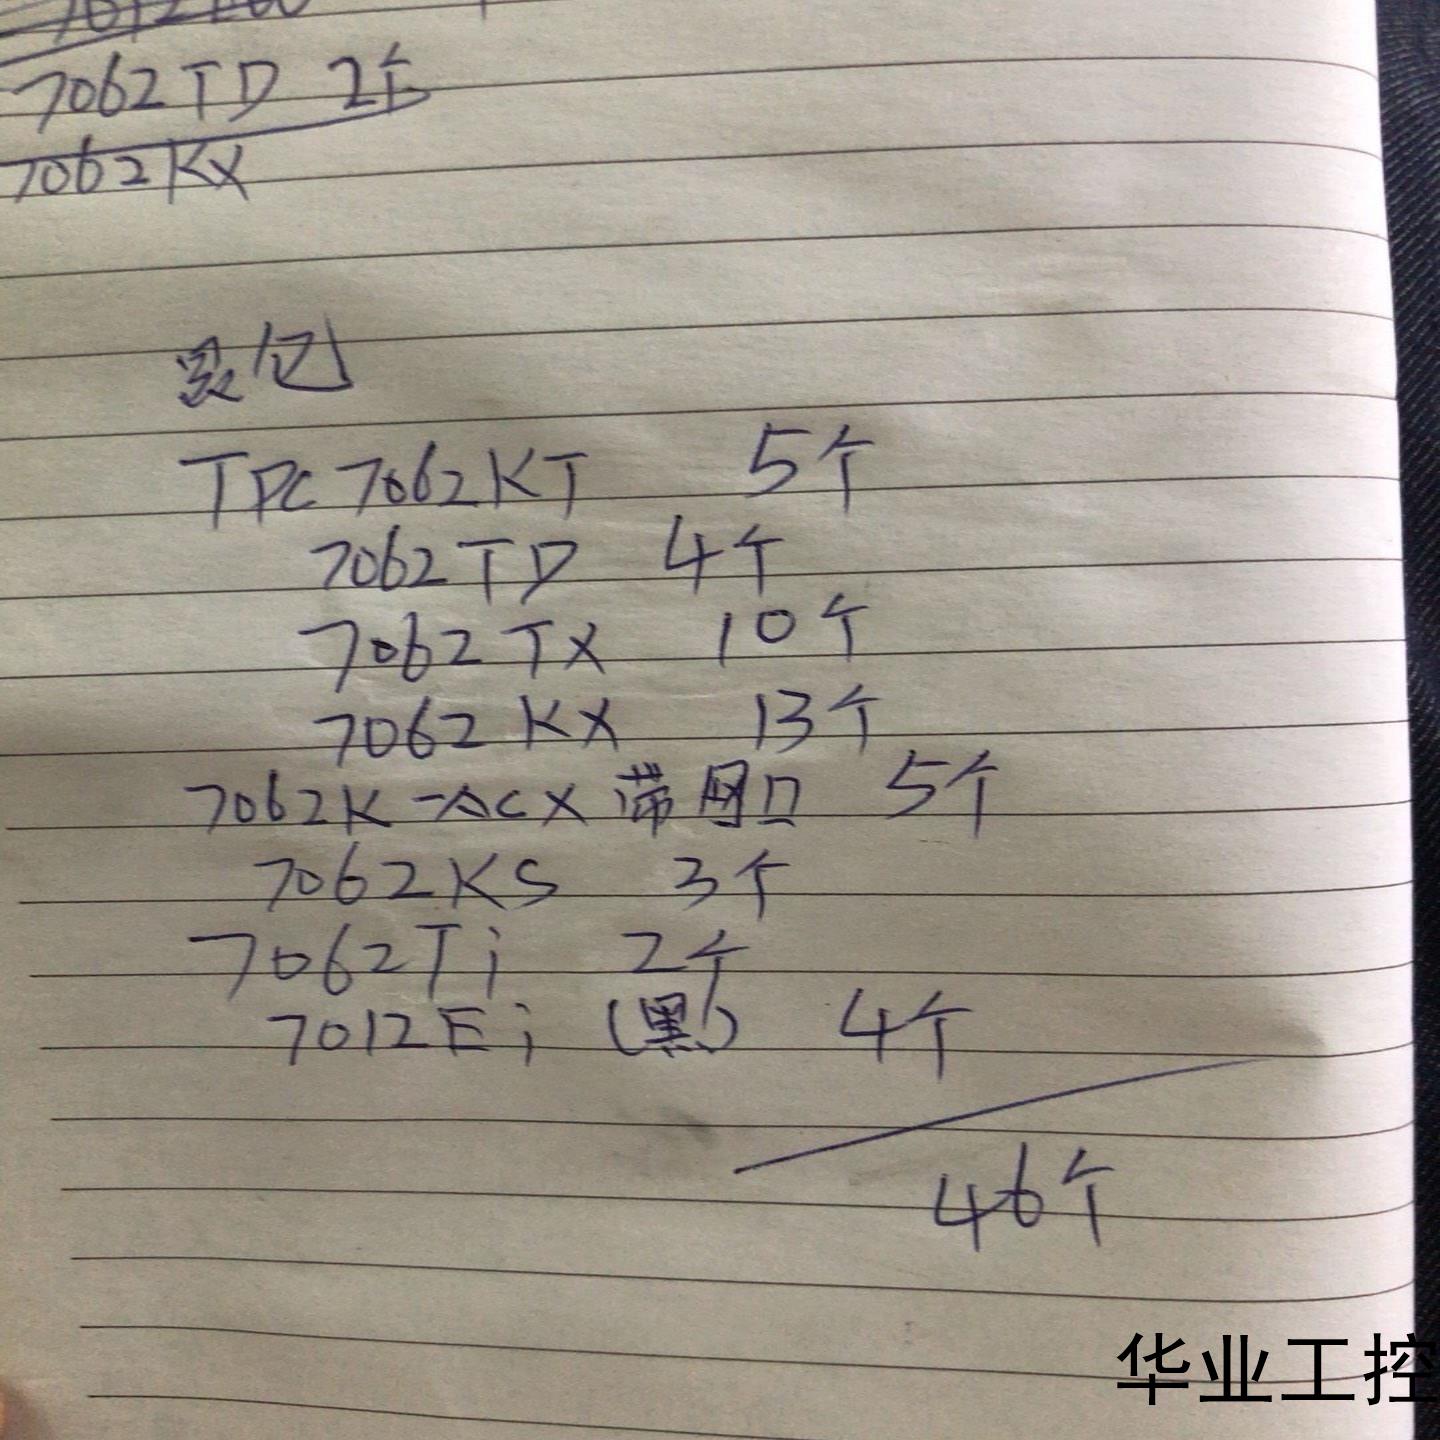 7062TD 2个
7062KX
TPC7062KT 5个
7062TD 4个
7062TX 10个
7062KX 13个
7062K-ACX 带网口 5个
7062KS 3个
7062Ti 2个
7012Ei (黑) 4个
46个
华业工控